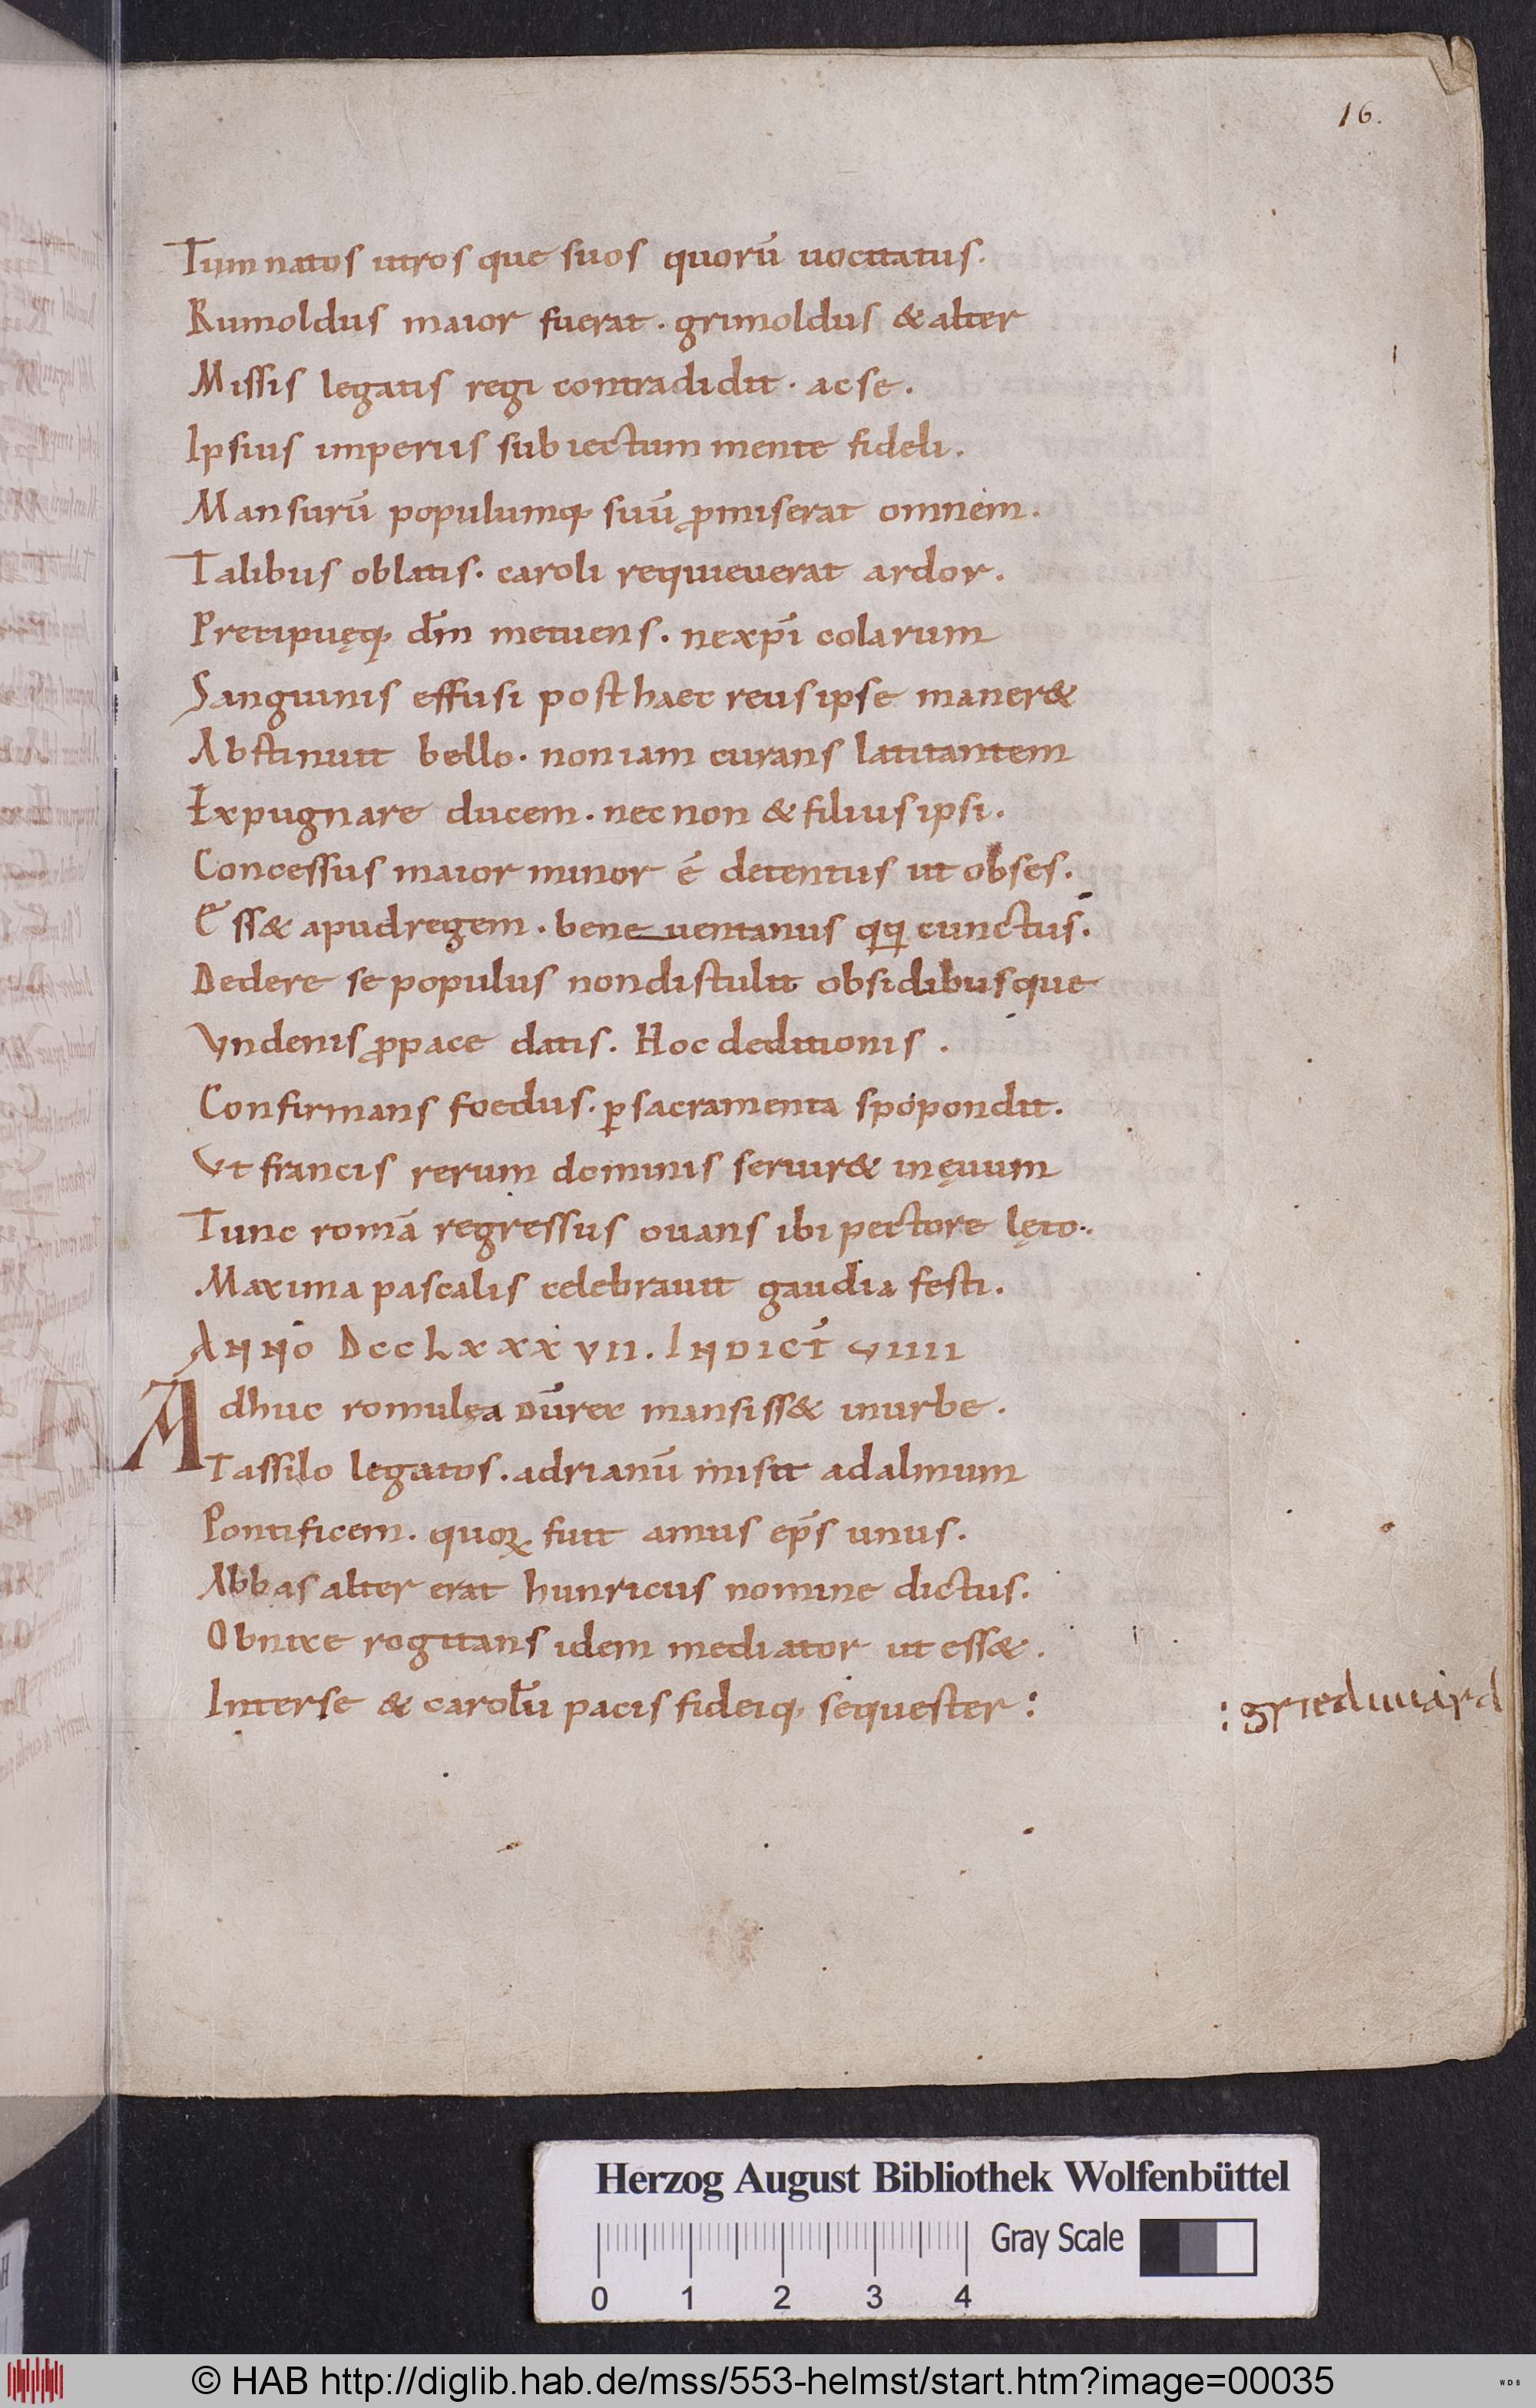 16.
Tum natos utrosque suos quorū uocitatus.
Rumoldus maior fuerat. grimoldus & alter
Missis legatis regi contradidit. ac se.
Ipsius imperiis subiectum mente fideli.
Mansurū populumq; suū ꝓmiserat omnem.
Talibus oblatis. caroli requieuerat ardor.
Precipuęq; dm̄ metuens. ne xp̄icolarum
Sanguinis effusi post haec reus ipse maner&
Abstinuit bello. non iam curans latitantem
Expugnare ducem. nec non & filius ipsi.
Concessus maior minor ē detentus ut obses.
Ess& apud regem. beneuentanus qq; cunctus.
Dedere se populus non distulit obsidibusque
Vndenis ꝓ pace datis. Hoc deditionis.
Confirmans foedus. ꝑ sacramenta spopondit.
Vt francis rerum dominis seruir& in ęuum
Tunc romā regressus ouans ibi pectore lęto.
Maxima pascalis celebrauit gaudia festi.
ANNO DCCLXXXVII. INDICT̄ VIIII
Adhuc romulęa dū rex mansiss& in urbe.
Tassilo legatos. adrianū misit ad almum
Pontificem. quoꝝ fuit arnus ep̄s unus.
Abbas alter erat hunricus nomine dictus.
Obnixe rogitans idem mediator ut ess&.
Inter se & carolū pacis fideiq; sequester:
: griedwuard
Herzog August Bibliothek Wolfenbüttel
Gray Scale
0 1 2 3 4
© HAB http://diglib.hab.de/mss/553-helmst/start.htm?image=00035